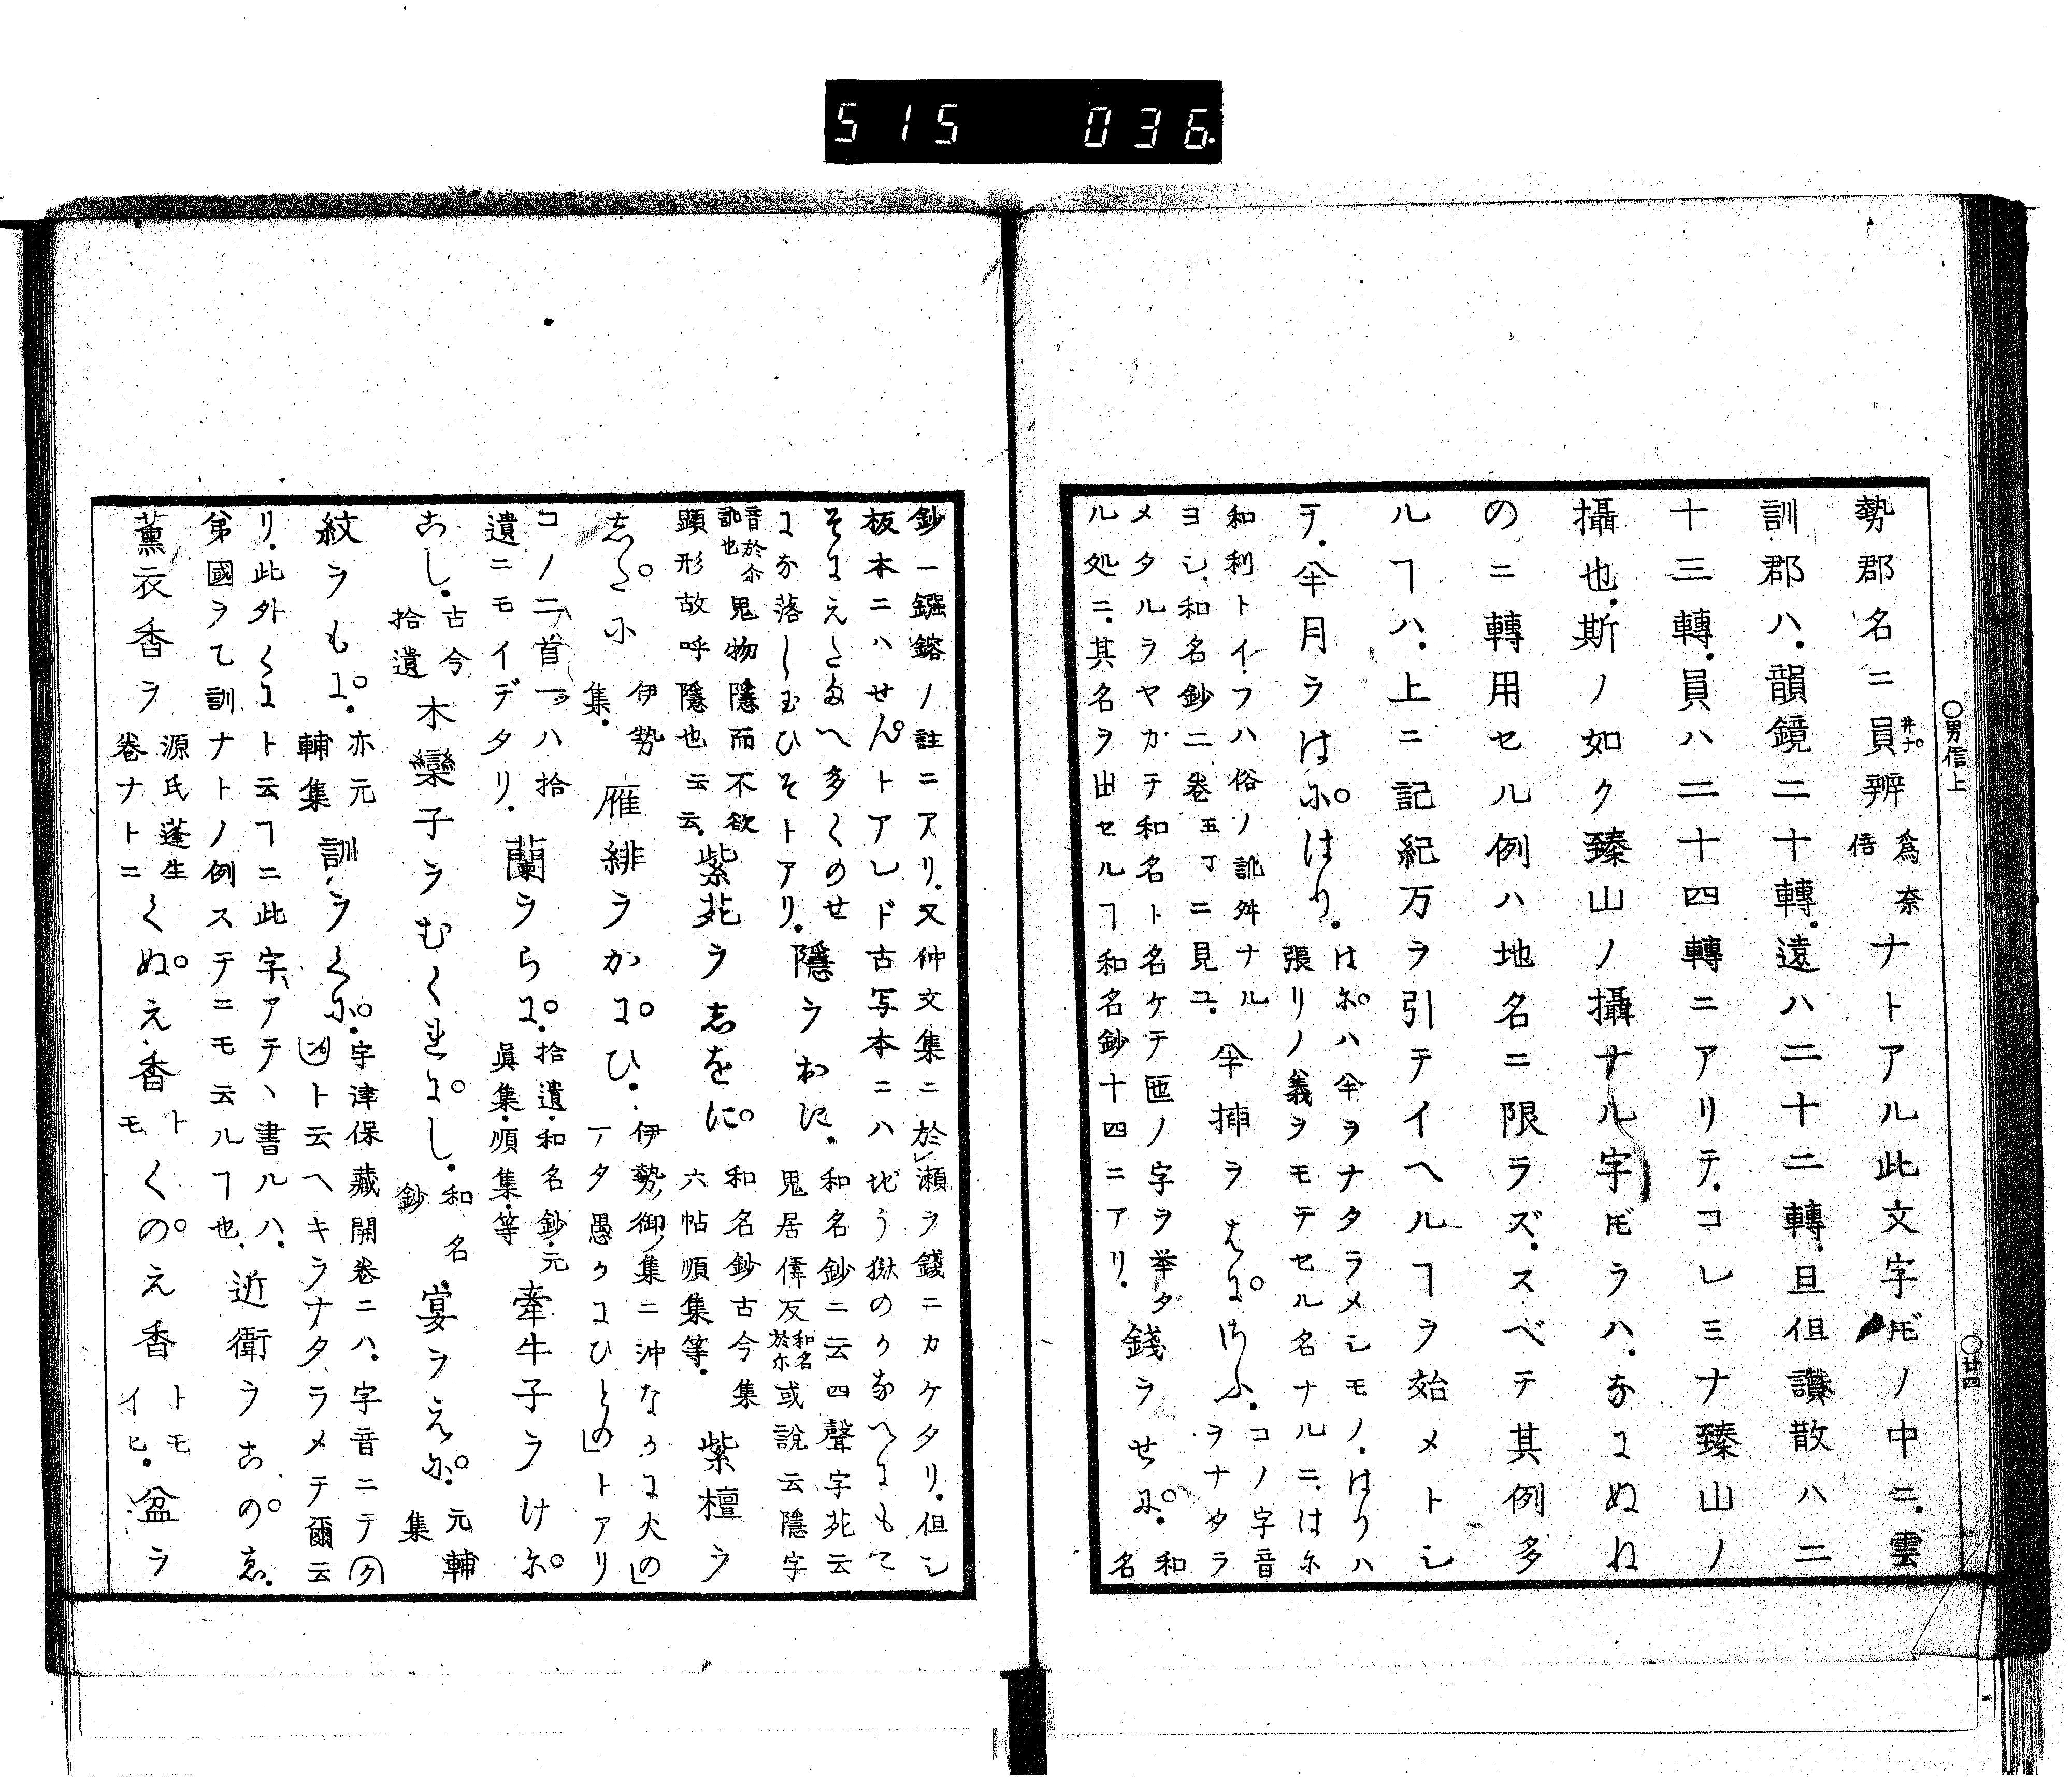 515 036
○男信上
○廿四
勢郡名ニ員ヰナ辨爲奈倍ナトアル此文字𪜈ノ中ニ.雲
訓郡ハ.韻鏡二十轉.遠ハ二十二轉.且但讃散ハ二
十三轉.員ハ二十四轉ニアリテ.コレミナ臻山ノ
攝也.斯ノ如ク臻山ノ攝ナル字𪜈ラハ.なにぬね
のニ轉用セル例ハ地名ニ限ラズ.スベテ其例多
ルヿハ.上ニ記紀万ヲ引テイヘルヿヲ始メトシ
テ.半月ラはにはり.
はにハ半ヲナタラメシモノ.はりハ
張リノ義ヲモテセル名ナルニ.はに
和利トイフハ俗ノ訛舛ナル
ヨシ.和名鈔二巻五丁ニ見ユ.
半挿ヲはにさふ.
コノ字音
ヲナタラ
メタルラヤカテ和名ト名ケテ匜ノ字ヲ挙タ
ル処ニ.其名ヲ出セルヿ和名鈔十四ニアリ.
錢ラせに.
和
名
鈔一鏹鎔ノ註ニアリ.又仲文集ニ於瀬ラ錢ニカケタリ.但シ
板本ニハせんトアレド古写本ニハぢう獄のかなへにもて
隱ラおに.
和名鈔ニ云四聲字苑云
鬼居偉反和名於尓或説云隱字
音於尓訛也鬼物隱而不欲
顯形故呼隱也云云.
紫苑ラしをに
和名鈔古今集
六帖順集等.
紫檀ラ
したに
伊勢
集.
雁緋ラかにひ.
伊勢ノ御ノ集ニ沖なかに火の
トアリ
コノ二首一ツハ拾
遺ニモイデタリ.
蘭ラらに.
拾遺.和名鈔.元
眞集.順集.等
牽牛子ラけに
こし.
古今
拾遺
木欒子ラむくれにし.
和名
鈔
宴ラえに.
元輔
集
紋ラもに.
亦元
輔集
訓ラくに.
宇津保藏開巻ニハ.字音ニテ
ト云ヘキラナタラメテ爾云
リ.此外くにト云ヿニ此字アテヽ書ルハ.
弟國ヲて訓ナトノ例ステニモ云ルヿ也.
近衞ラこのゑ.
薫衣香ラ
源氏蓬生
巻ナトニ
くぬえ香
ト
モ
くのえ香
トモ
イヒ.
盆ラ